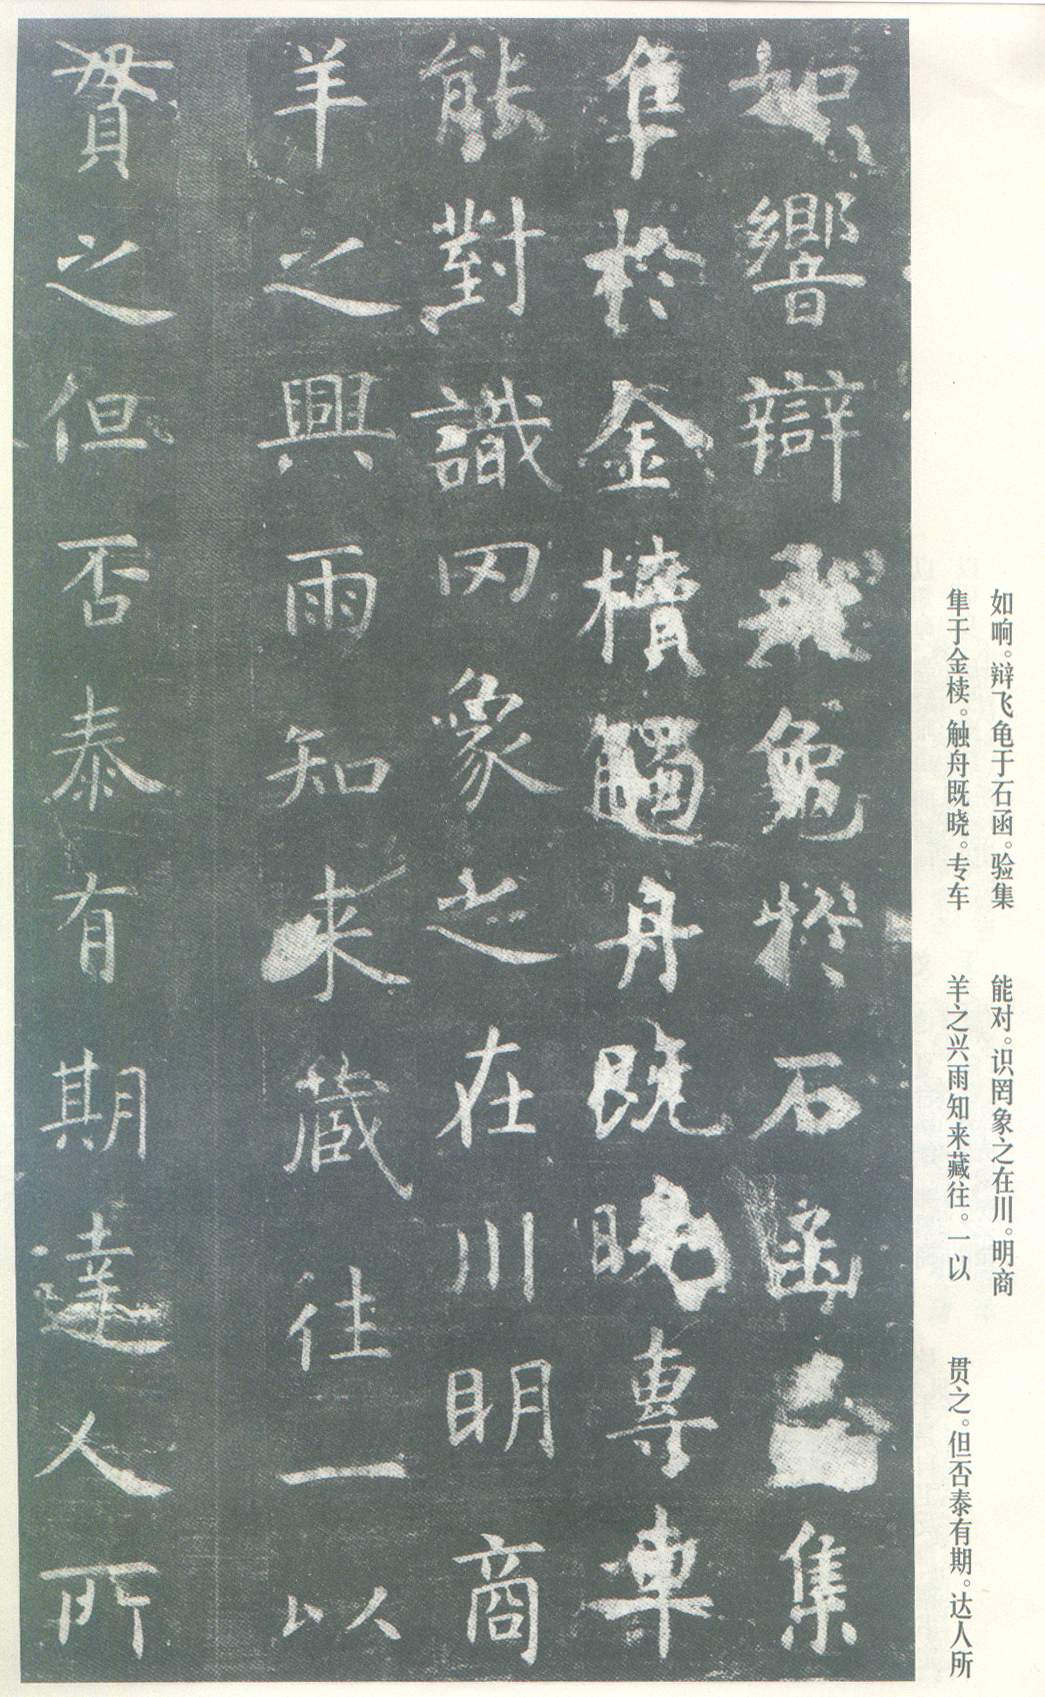 如響辯飛龜於石函驗集
隼於金櫝觸舟既曉專車
能對識罔象之在川明商
羊之興雨知来蔵往一以
贯之但否泰有期達人所
如响。辩飞龟于石函。验集
隼于金椟。触舟既晓。专车
能对。识罔象之在川。明商
羊之兴雨知来藏往。一以
贯之。但否泰有期。达人所